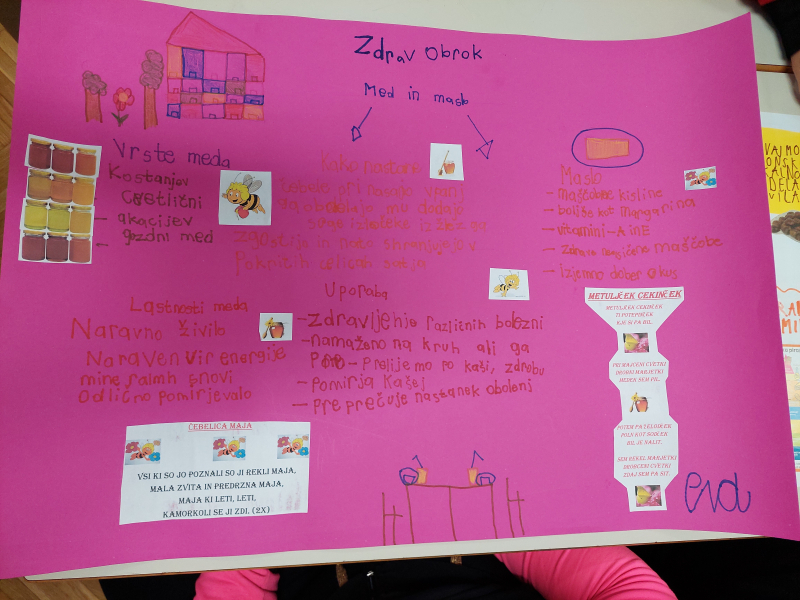 Zdrav obrok
Med in maslo
Vrste meda
Kostanjev
Cvetlični
- akacijev
- gozdni med
Kako nastane
čebele prinašajo
ga obdelajo mu dodajo
svoje izločke iz žlez ga
zgostijo in nato shranjujejo v
pokritih celicah satja
Maslo
- maščobne kisline
- boljše kot margarina
- vitamini-A in E
- zdrave maščobe
- izjemno dober okus
Lastnosti meda
Naravno živilo
Naraven vir energije
mineralnih snovi
Odlično pomirjevalo
Uporaba
- Zdravljenje različnih bolezni
- namaženo na kruh ali ga
- Prelijemo po kaši, zdrobu
- Pomirja kašelj
- preprečuje nastanek obolenj
METULJČEK CEKINČEK
METULJČEK CEKINČEK
TI POTEPINČEK
KJE SI PA BIL.
PRI MAJCENI CVETKI
DROBNI MARJETKI
MEDEK SEM PIL.
POTEM PA ŽELODČEK
POLN KOT SODČEK
BIL JE NALIT.
SEM REKEL MARJETKI
DROBCENI CVETKI
ZDAJ SEM PA SIT.
ČEBELICA MAJA
VSI KI SO JO POZNALI SO JI REKLI MAJA,
MALA ZVITA IN PREDRZNA MAJA,
MAJA KI LETI, LETI,
KAMORKOLI SE JI ZDI. (2X)
eva